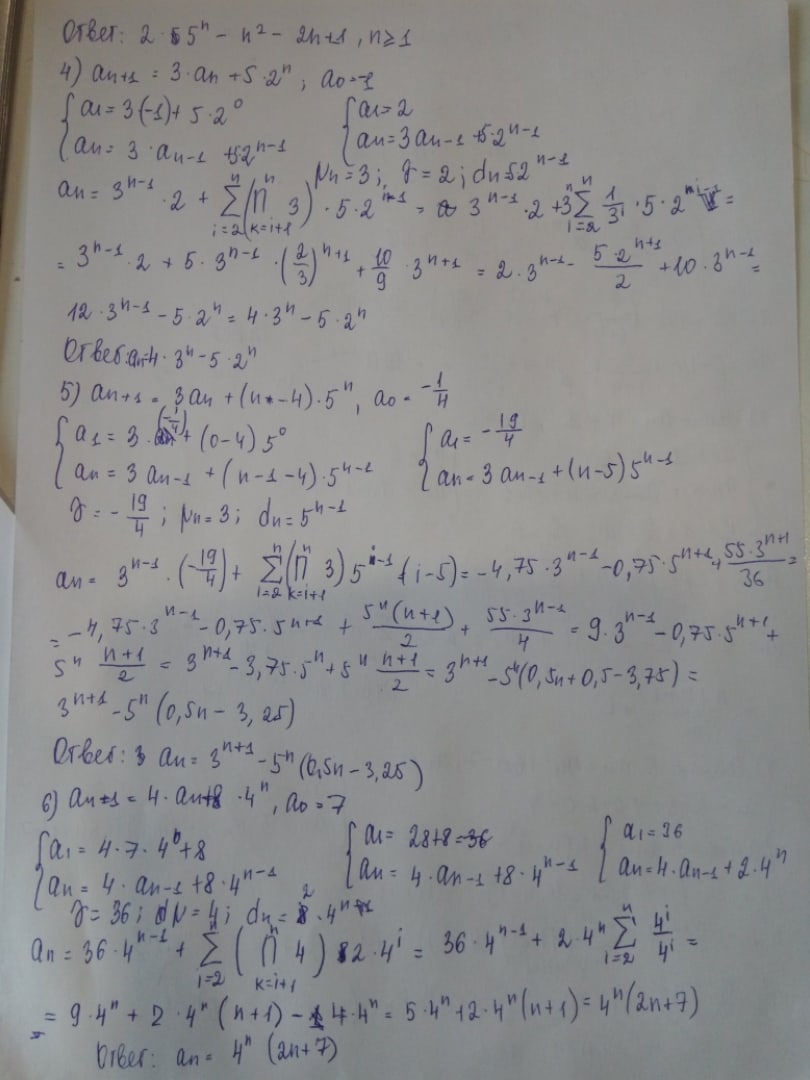 Ответ: 2·5^n - n^2 - 2n+1, n≥1
4) a_{n+1} = 3·a_n + 5·2^n; a_0=-1
{a_1=3(-1)+5·2^0 {a_1=2
a_n= 3·a_{n-1} +5·2^{n-1} a_n=3a_{n-1} +5·2^{n-1}
μ_n=3; γ=2; d_n=5·2^{n-1}
a_n= 3^{n-1}·2 + ∑_{i=2}^{n} (∏_{k=i+1}^{n} 3)·5·2^{i-1} = 3^{n-1}·2 +3^n ∑_{i=2}^{n} 1/3^i ·5·2^{i-1} =
= 3^{n-1}·2 + 5·3^{n-1}·(2/3)^{n+1} + 10/9 ·3^{n+1} = 2·3^{n-1} - 5·2^{n+1}/2 +10·3^{n-1} =
12·3^{n-1} - 5·2^n = 4·3^n - 5·2^n
Ответ: a_n=4·3^n - 5·2^n
5) a_{n+1} = 3a_n + (n-4)·5^n, a_0= -1/4
{a_1=3·(-1/4)+(0-4)5^0 {a_1= -19/4
a_n= 3a_{n-1} +(n-1-4)·5^{n-1} a_n=3a_{n-1}+(n-5)5^{n-1}
γ= -19/4; μ_n=3; d_n=5^{n-1}
a_n= 3^{n-1}·(-19/4)+ ∑_{i=2}^{n} (∏_{k=i+1}^{n} 3) 5^{i-1}(i-5)= -4,75·3^{n-1} -0,75·5^{n+1}+ 55·3^{n+1}/36 =
= -4,75·3^{n-1} -0,75·5^{n+1} + 5^n(n+1)/2 + 55·3^{n-1}/4 = 9·3^{n-1} -0,75·5^{n+1} +
5^n n+1/2 = 3^{n+1} -3,75·5^n +5^n n+1/2 = 3^{n+1} -5^n(0,5n+0,5-3,75) =
3^{n+1} -5^n(0,5n-3,25)
Ответ: a_n= 3^{n+1} -5^n(0,5n-3,25)
6) a_{n+1} = 4·a_n+8·4^n, a_0=7
{a_1= 4·7·4^0+8 {a_1= 28+8=36 {a_1=36
a_n= 4·a_{n-1}+8·4^{n-1} a_n= 4·a_{n-1}+8·4^{n-1} a_n=4·a_{n-1}+2·4^n
γ=36; μ=4; d_n= 2·4^n
a_n= 36·4^{n-1} + ∑_{i=2}^{n} (∏_{k=i+1}^{n} 4) 2·4^i = 36·4^{n-1}+ 2·4^n ∑_{i=2}^{n} 4^i/4^i =
= 9·4^n + 2·4^n (n+1) - 4·4^n = 5·4^n +2·4^n(n+1) = 4^n(2n+7)
Ответ: a_n= 4^n (2n+7)